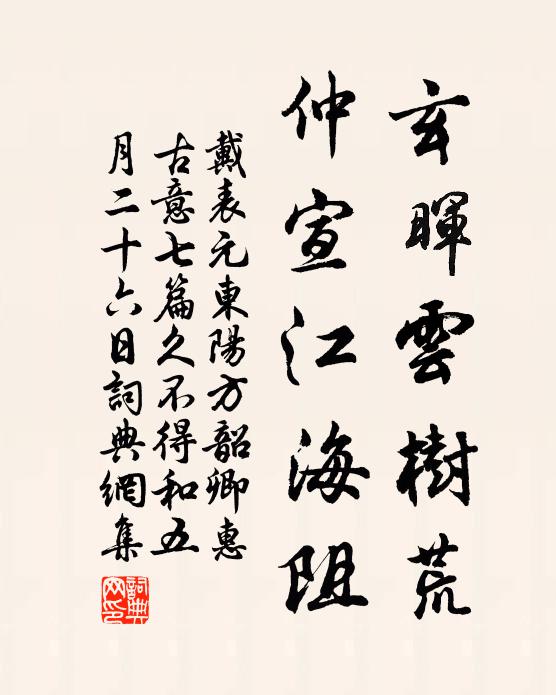 玄暉雲樹荒
仲宣江海阻
戴表元東陽方韶卿惠
古意七篇久不得和五
月二十六日詞典網集
詞典网印